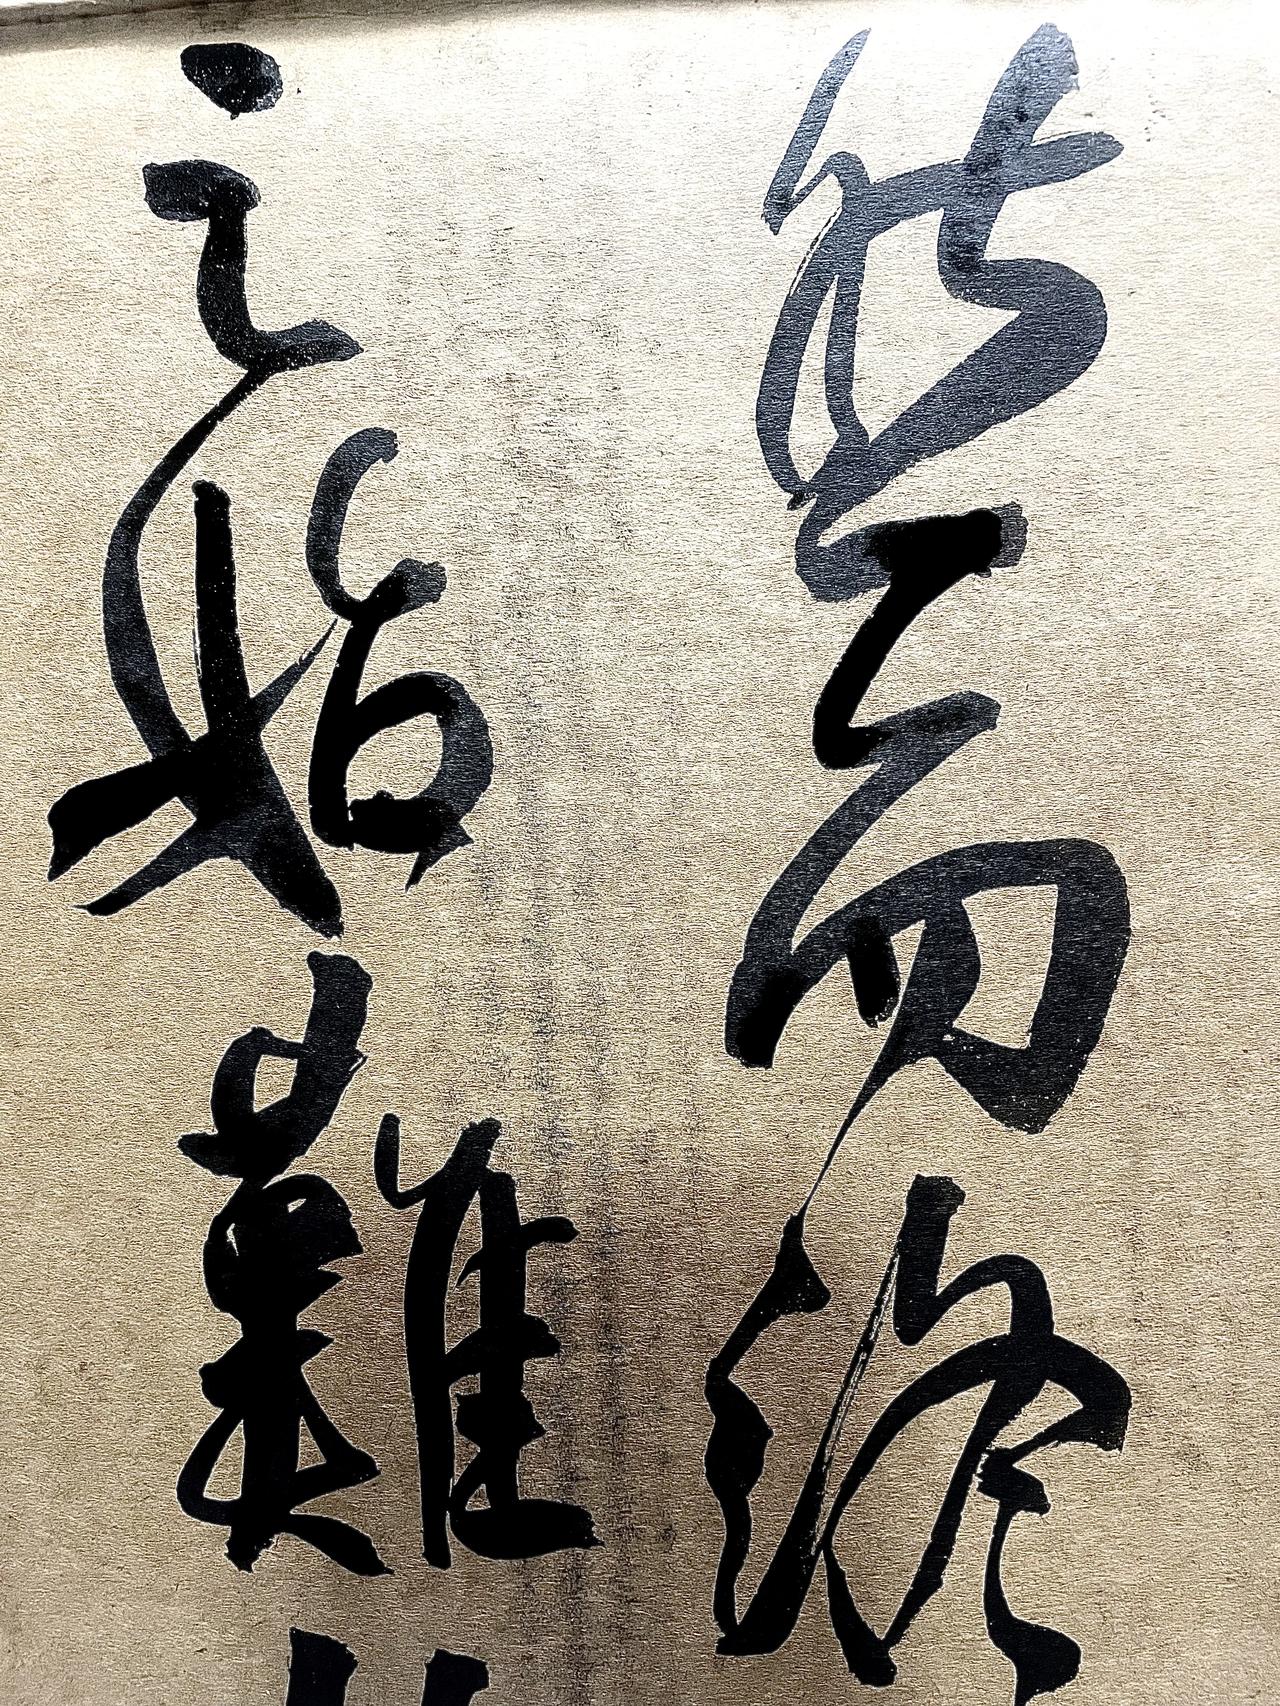 然而終
之始難